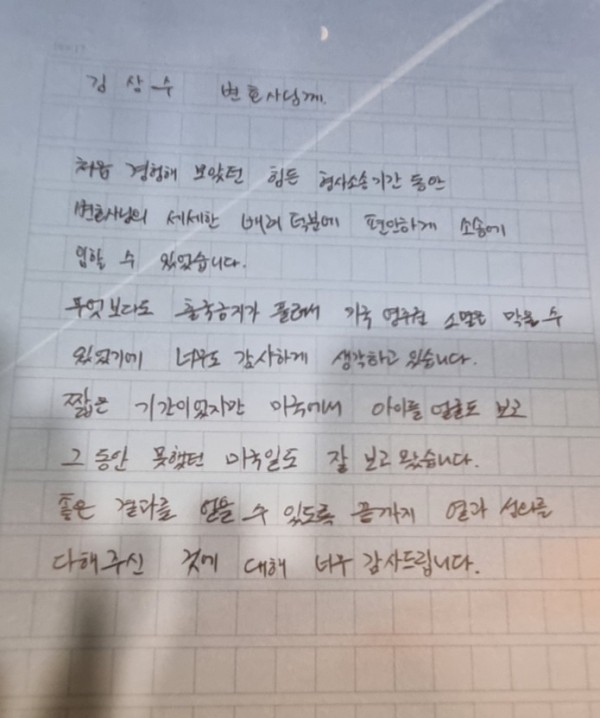 김상수 변호사님께.
처음 경험해 보았던 힘든 형사소송기간 동안
변호사님의 세세한 배려 덕분에 편안하게 소송에
임할 수 있었습니다.
무엇보다도 출국금지가 풀려서 영주권 소멸을 막을 수
있었기에 너무도 감사하게 생각하고 있습니다.
짧은 기간이었지만 미국에서 아이들 얼굴도 보고
그 동안 못했던 미국일도 잘 보고 왔습니다.
좋은 결과를 얻을 수 있도록 끝까지 열과 성의를
다해주신 것에 대해 너무 감사드립니다.